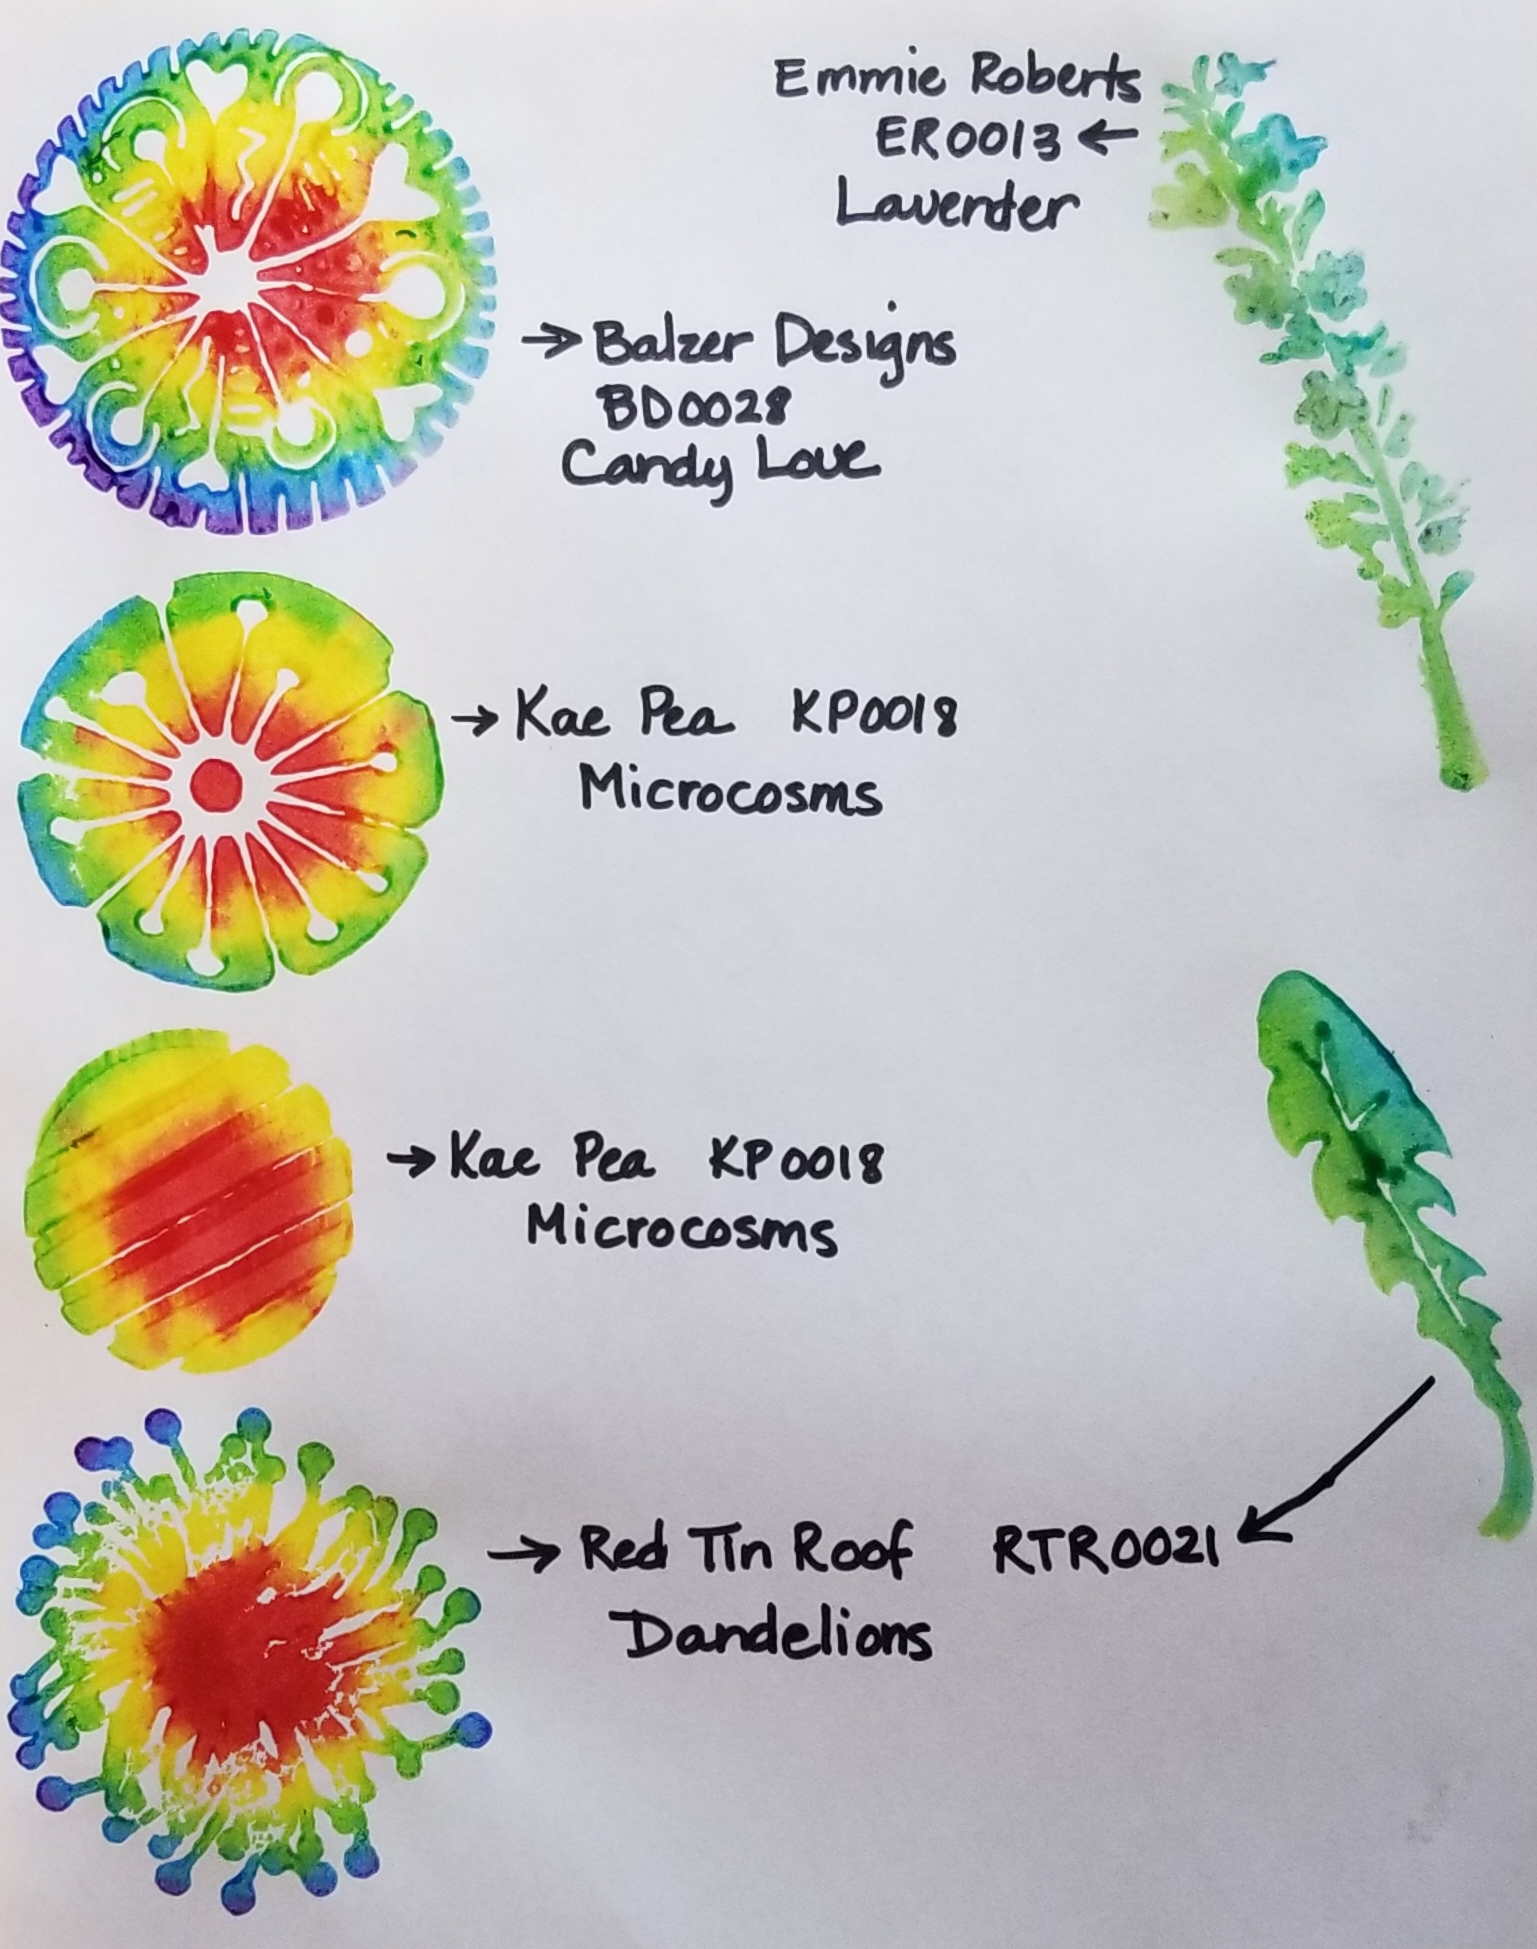 Emmie Roberts
ER0013 ←
Lavender
→ Balzer Designs
BD0028
Candy Love
→ Kae Pea KP0018
Microcosms
→ Kae Pea KP0018
Microcosms
→ Red Tin Roof RTR0021
Dandelions